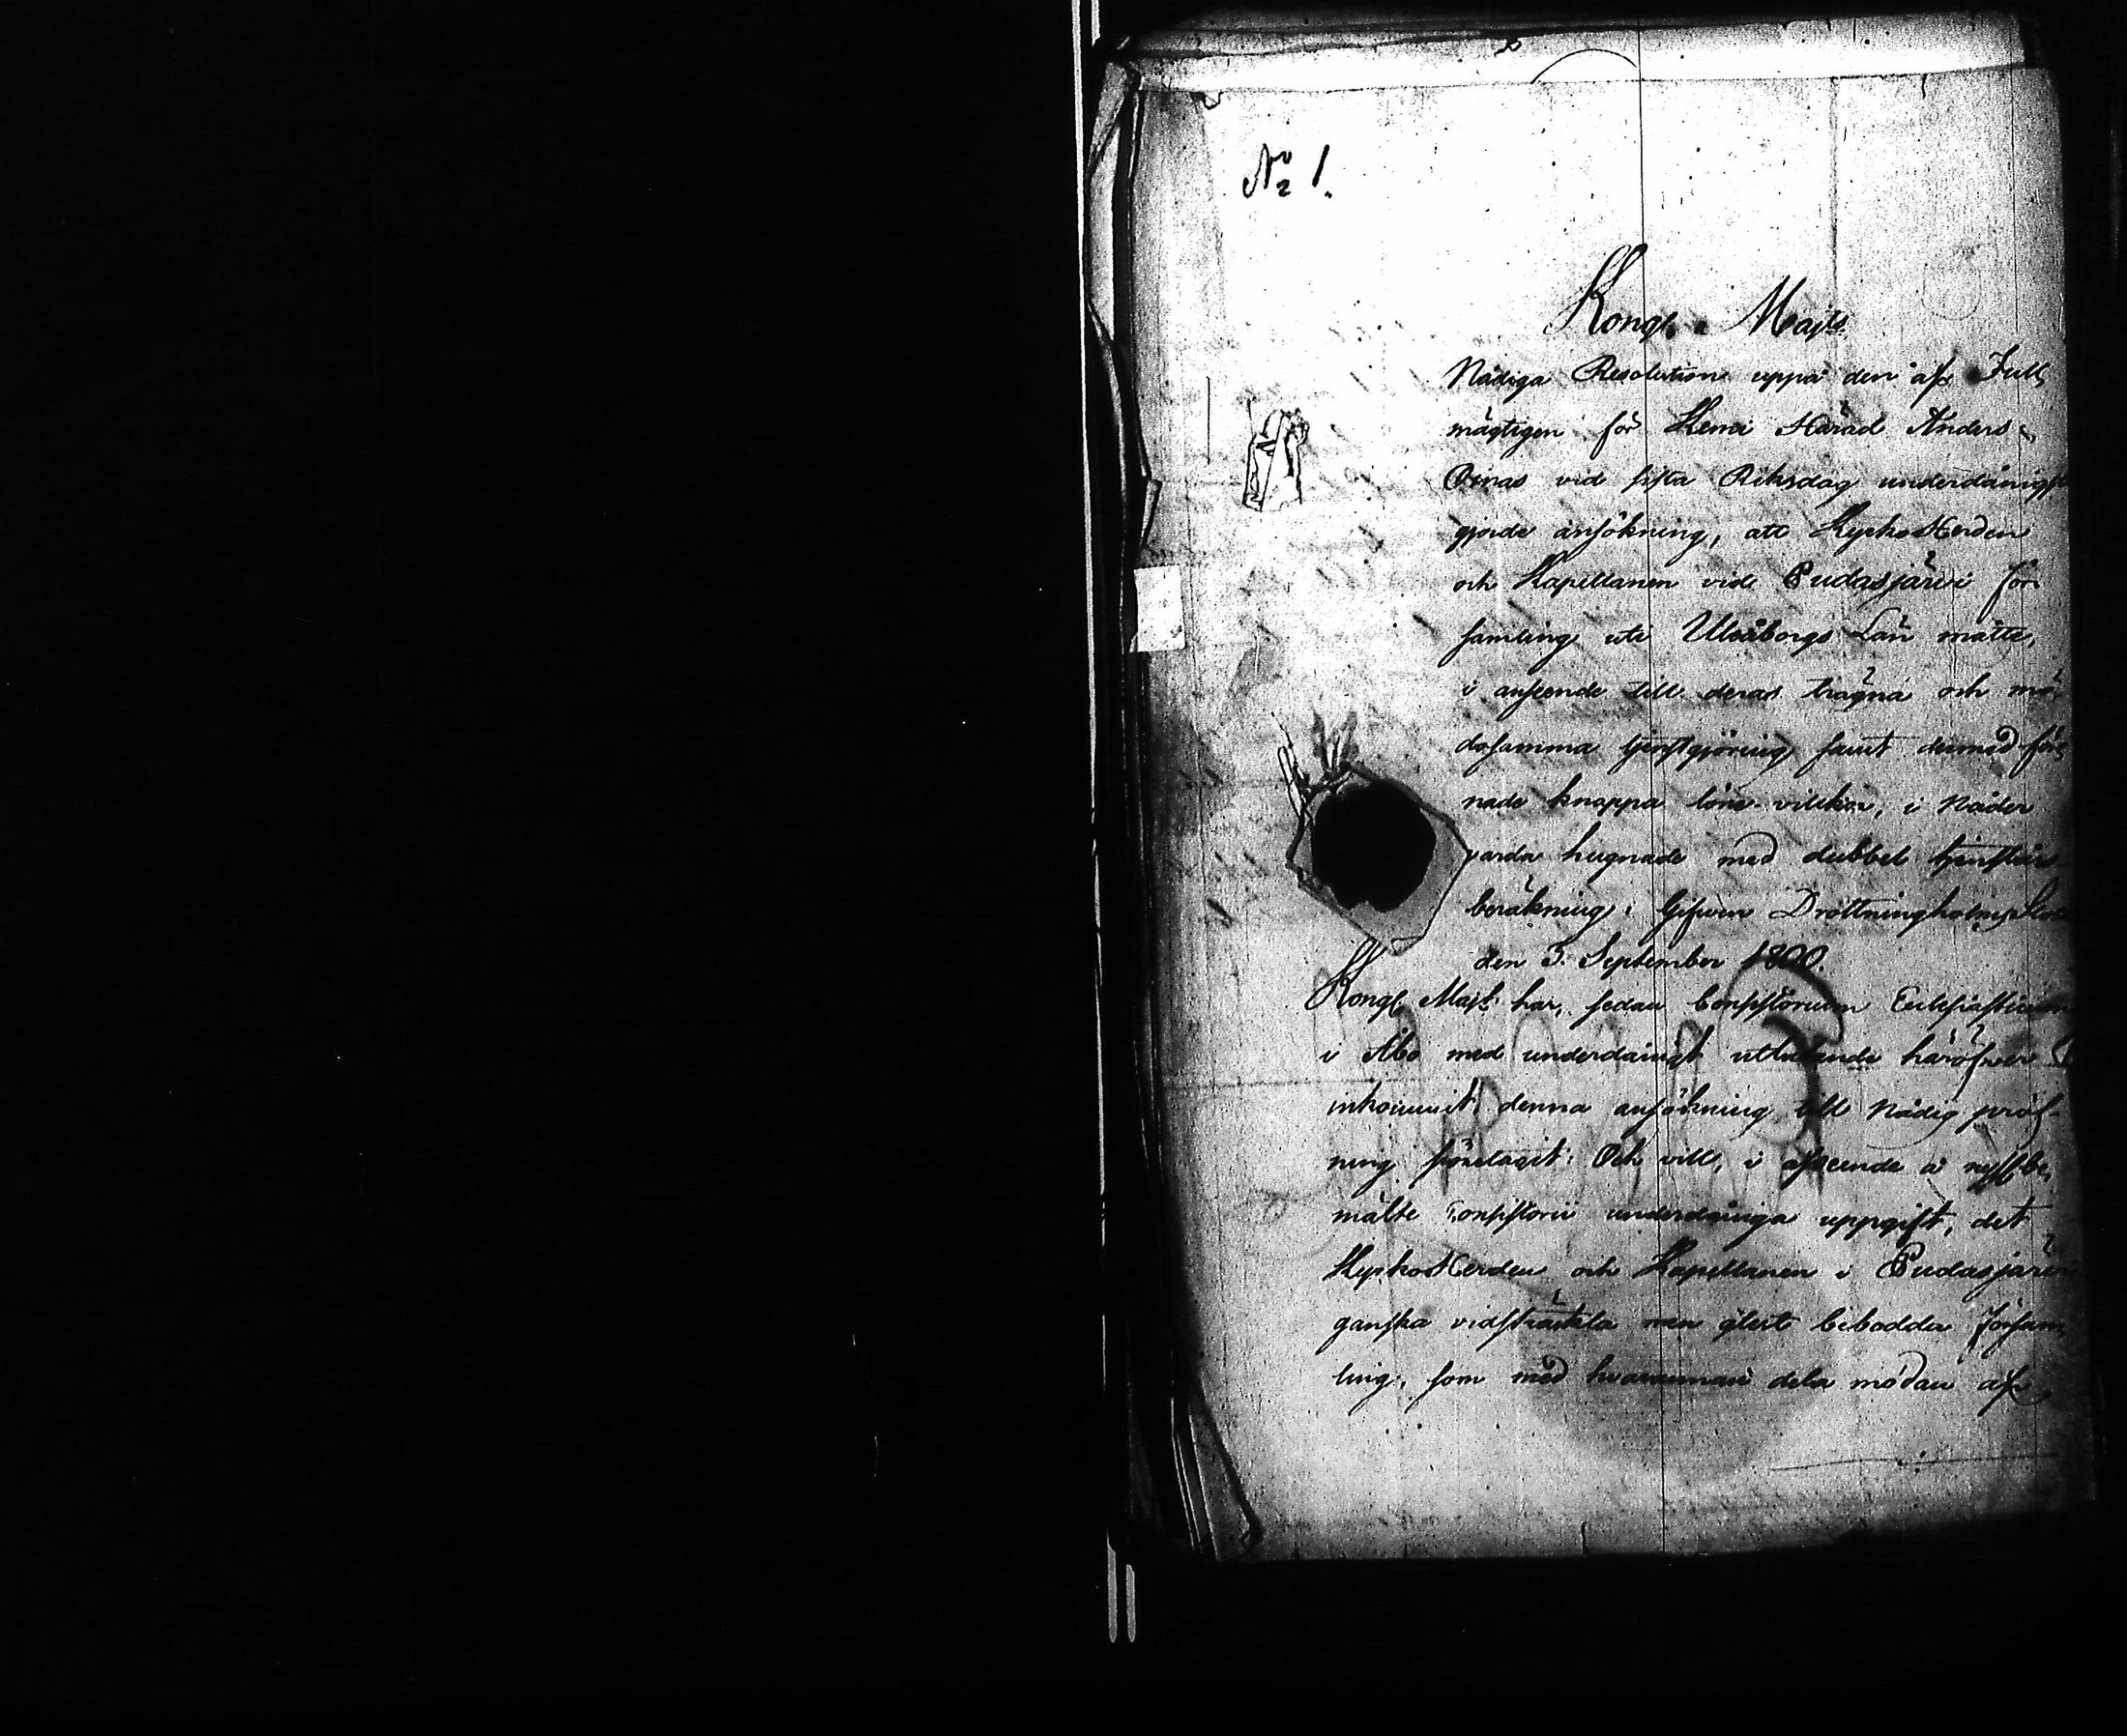 No 1.
Kongl. Majts
Nådiga Resolution uppå den af Full,
mägtigen för Kemi Härad Anders
Oinas vid sista Riksdag underdånigst
gjorde ansökning, att KyrkoHerden
och Kapellanen vid Pudasjärvi för-
samling uti Uleåborgs Län måtte,
i anseende till deras trägna och mö-
dosamma tjenstgjöring samt dermed före,
nade knappa löne-vilkor, i Nåder
varda hugnade med dubbel tjenstårs
beräkning; Gifwen Drottningholms Slott
den 3. September 1800.
Kongl. Majt. har, sedan Consistorium Ecclesiasticum
i Åbo med underdånigt utlåtande häröfwer
inkommit, denna ansökning till Nådig pröf-
ning företagit; Och vill, i afseende å nyssbe,
mälte Consistorii underdåniga uppgift, det
KyrkoHerden och Kapellanen i Pudasjärvi
ganska vidsträckta men glest bebodda Försam,
ling, som med hvarannan dela mödan af